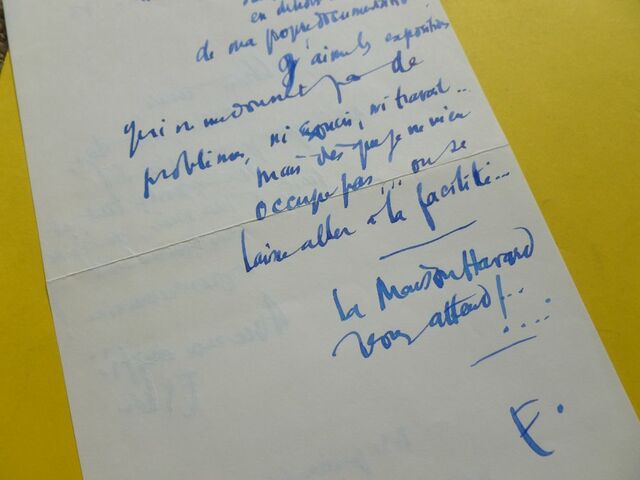 en dehors
de ma propre documentation
J'aime les expositions
qui ne me donnent pas de
problèmes, ni soucis, ni travail..
mais dès que je ne m'en
occupe pas ... on se
laisse aller à la facilité...
La Maison Havard
vous attend !..
....
F.